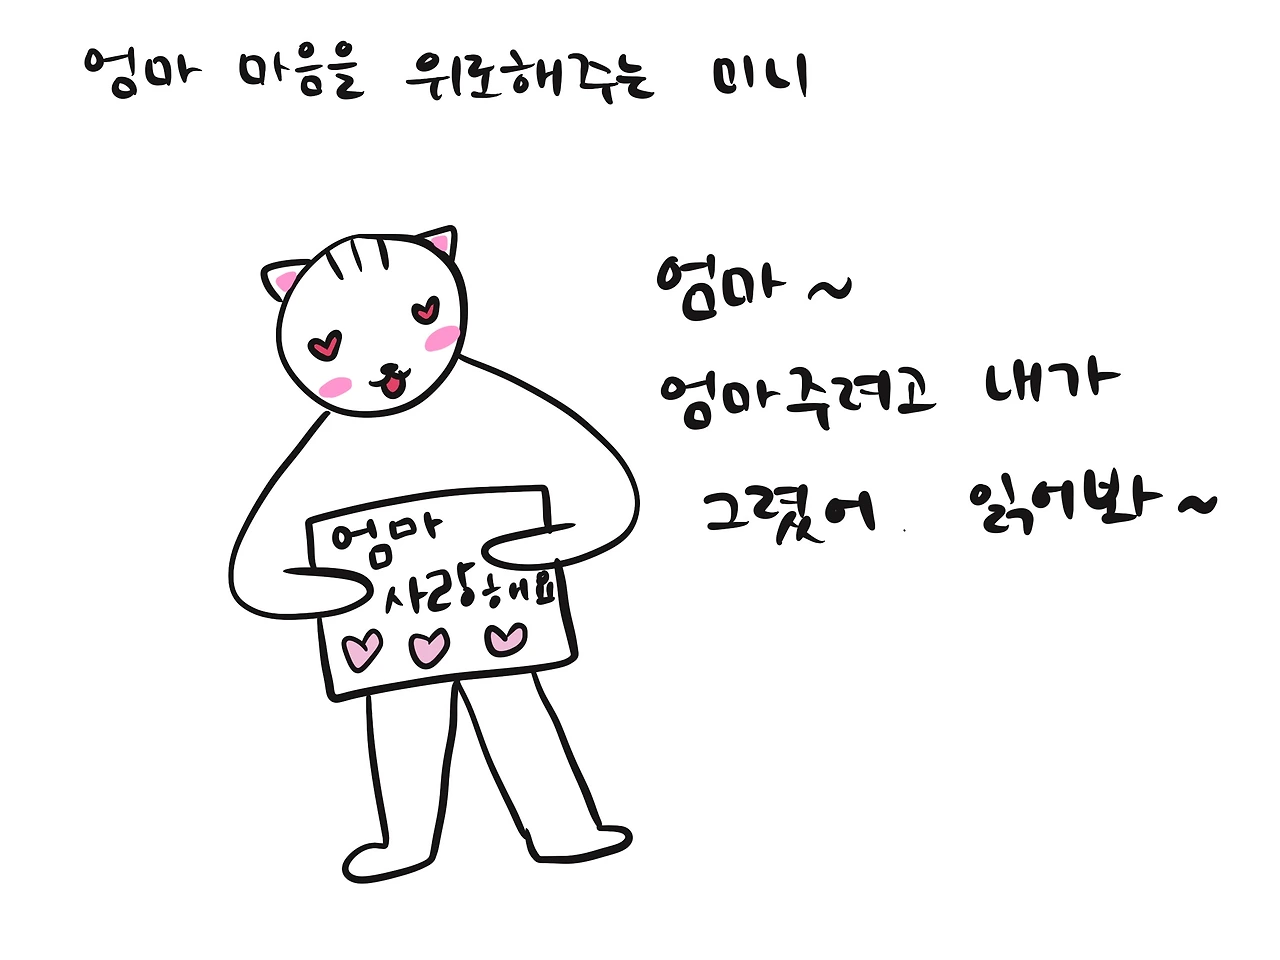 엄마 마음을 위로해주는 미니
엄마~
엄마주려고 내가
그렸어. 읽어봐~
엄마
사랑해요